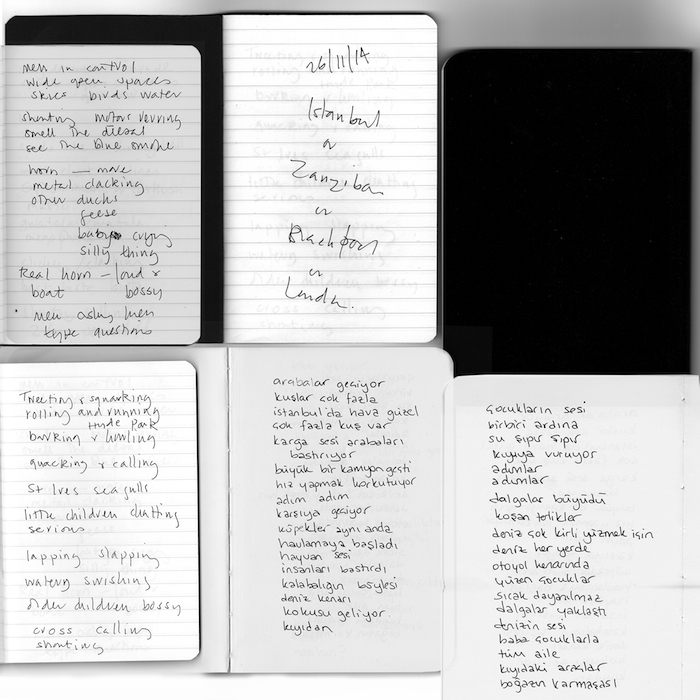 men in control
wide open spaces
skies birds water
shouting motors revving
smell the diesel
see the blue smoke
horn — move
metal clacking
other ducks
geese
baby crying
silly thing
Real horn – loud &
boat bossy
men asking men
type questions
26/11/14
Istanbul
or
Zanzibar
or
Blackpool
or
London.
Tweeting & squarking
rolling and running
Hyde Park
barking & howling
quacking & calling
St Ives seagulls
little children chatting
serious
lapping slapping
watery swishing
older children bossy
cross calling
shouting
arabalar geçiyor
kuşlar çok fazla
istanbul'da hava güzel
çok fazla kuş var
karga sesi arabaları
bastırıyor
büyük bir kamyon geçti
hız yapmak korkutuyor
adım adım
karşıya geçiyor
küpekler aynı anda
havlamaya başladı
hayvan sesi
insanları bastırdı
kalabalığın böylesi
deniz kenarı
kokusu geliyor
kıyıdan
çocukların sesi
birbiri ardına
su şıpır şıpır
kıyıya vuruyor
adımlar
adımlar
dalgalar büyüdü
koşan terlikler
deniz çok kirli yüzmek için
deniz her yerde
otoyol kenarında
yüzen çocuklar
sıcak dayanılmaz
dalgalar yaklaştı
denizin sesi
baba çocuklarla
tüm aile
kıyıdaki araçlar
boğazın karmaşası